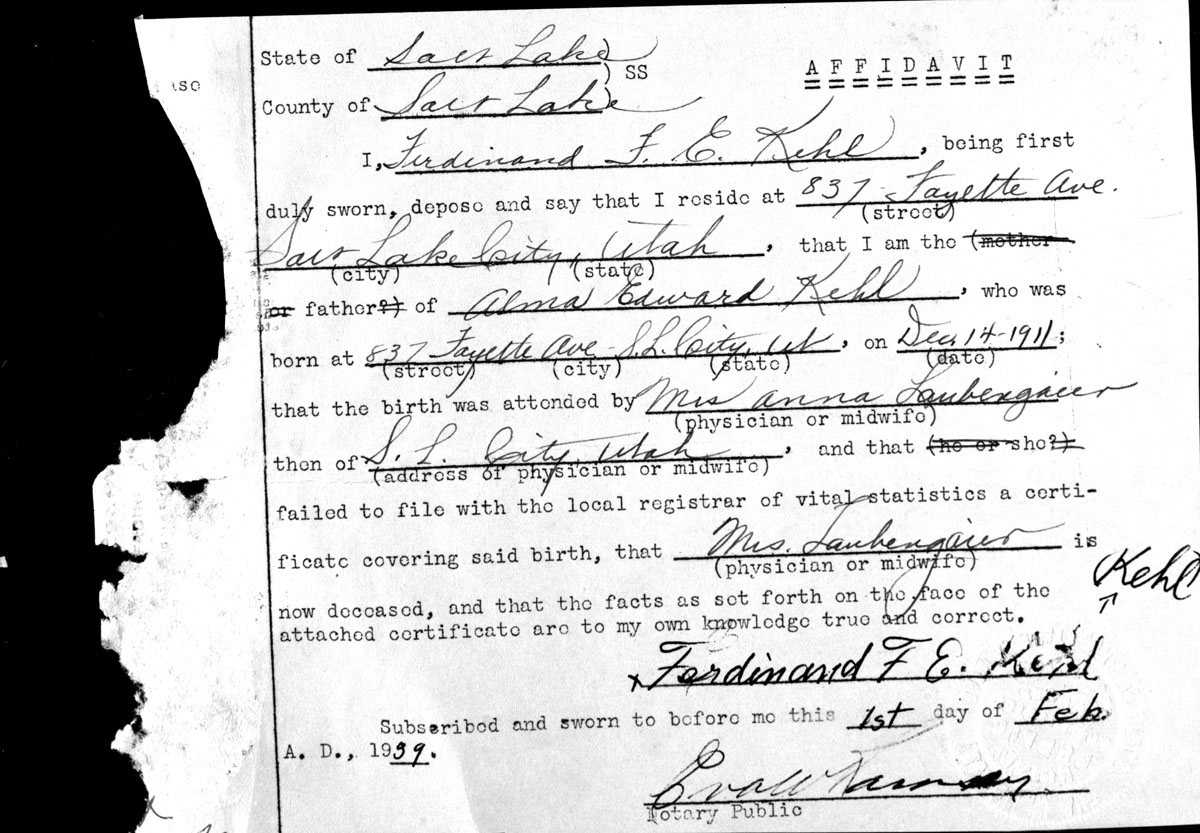 ASO
State of Salt Lake )
) SS
AFFIDAVIT
County of Salt Lake )
I, Ferdinand F. E. Kehl, being first
duly sworn, depose and say that I reside at 837 Fayette Ave.
(street)
Salt Lake City, Utah, that I am the (mother
(city) (state)
or father?) of Alma Edward Kehl, who was
born at 837 Fayette Ave - S.L. City, Ut, on Dec. 14-1911;
(street) (city) (state) (date)
that the birth was attended by Mrs Anna Laubengaier
(physician or midwife)
then of S. L. City, Utah, and that (he or she?)
(address of physician or midwife)
failed to file with the local registrar of vital statistics a certi-
ficate covering said birth, that Mrs. Laubengaier is
(physician or midwife)
Kehl
now deceased, and that the facts as set forth on the face of the
attached certificate are to my own knowledge true and correct.
x Ferdinand F E. Kehl
Subscribed and sworn to before me this 1st day of Feb.
A. D., 1939.
Eva W Ramsey
Notary Public